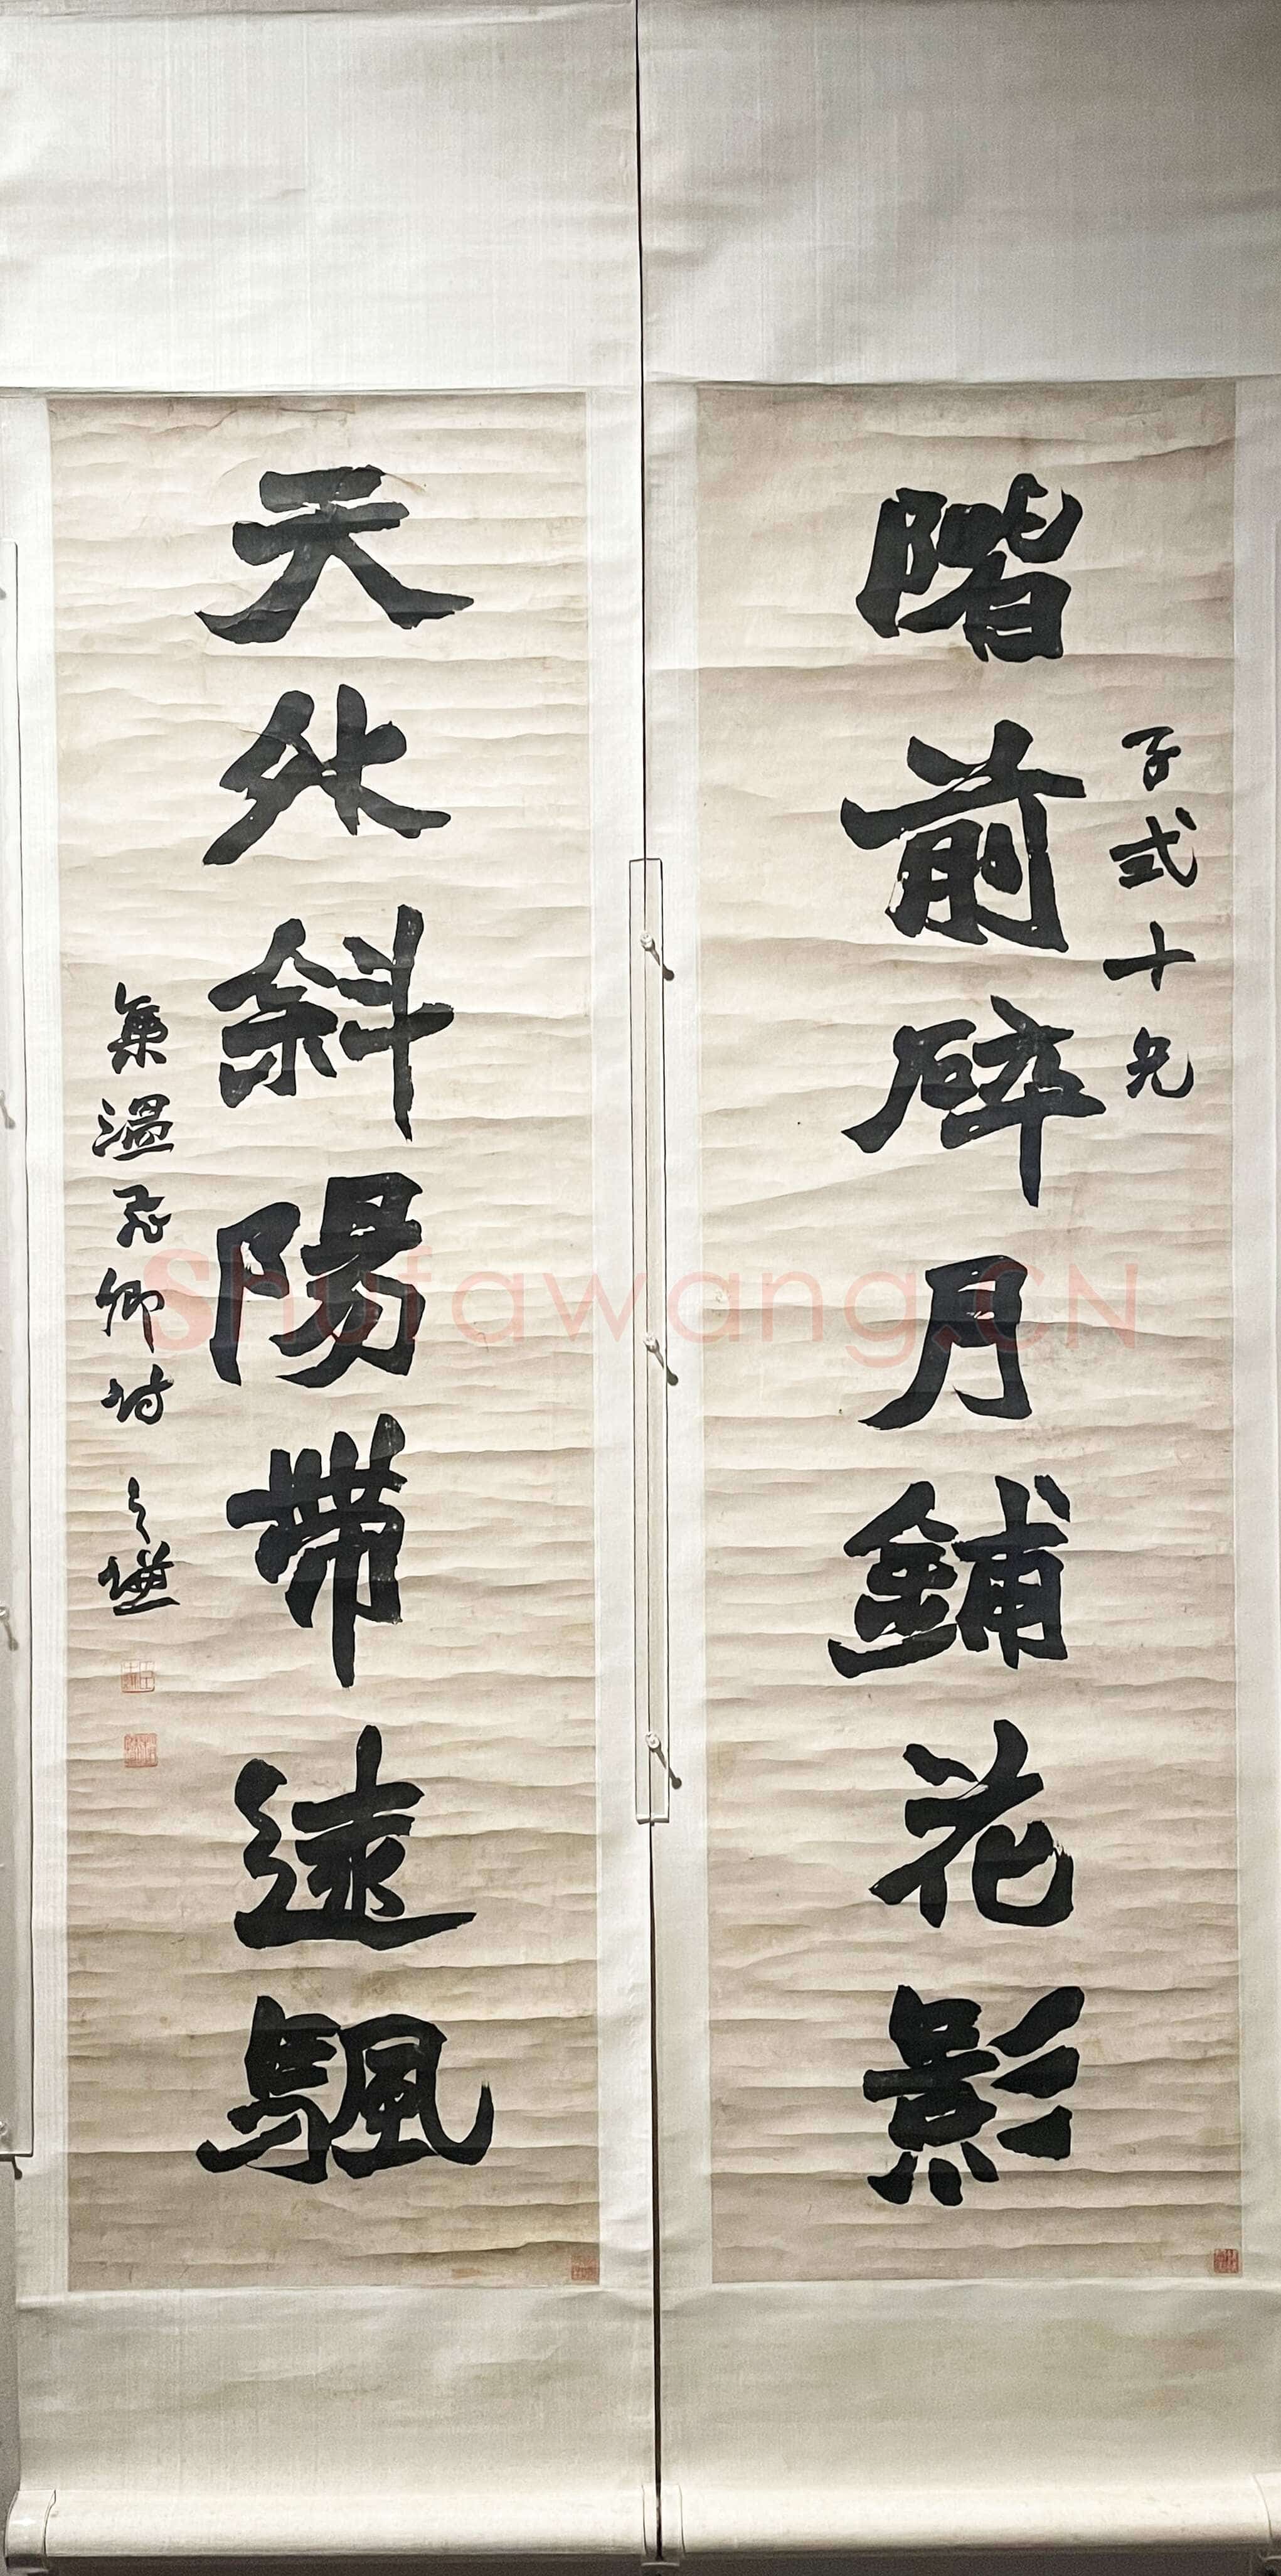 階前碎月鋪花影
子式十兄
天外斜陽帶遠颿
集溫飛卿詩
之謙
Shufawang.CN